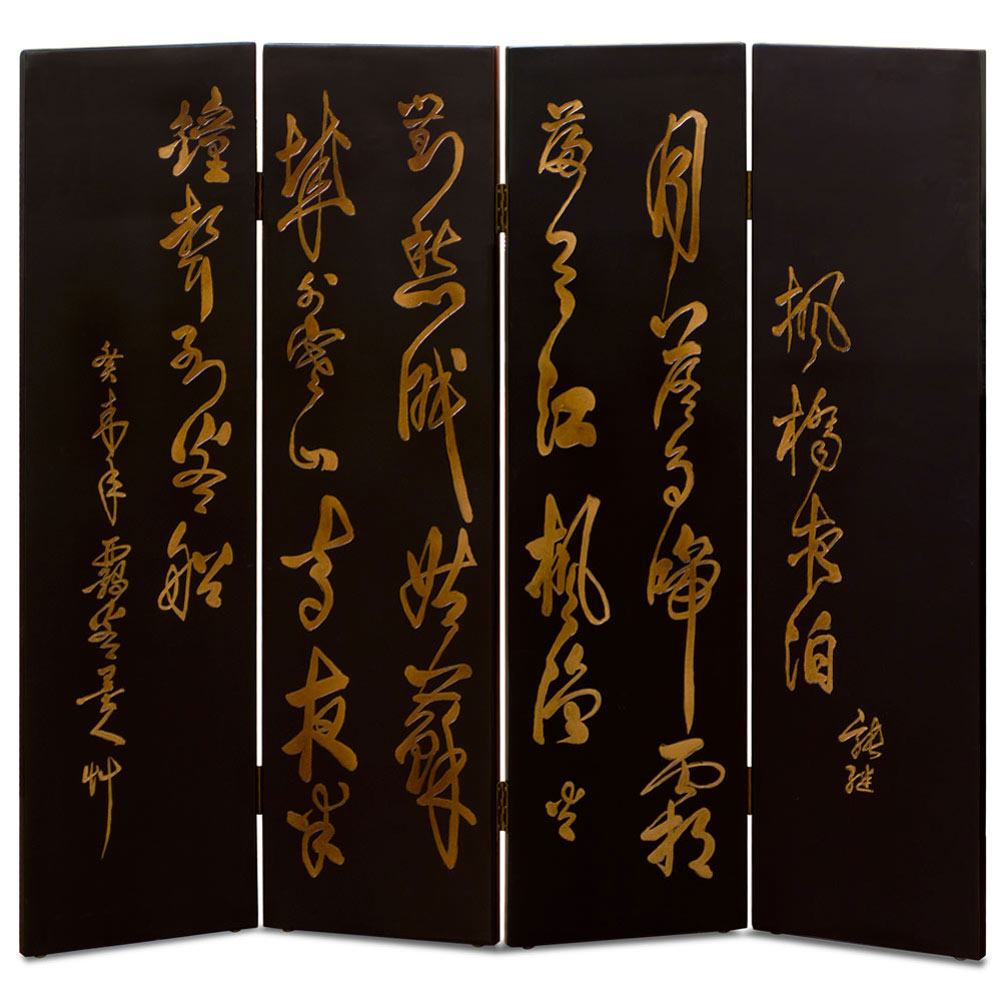 楓橋夜泊
張継
月落烏啼霜
滿天江楓漁火
對愁眠姑蘇
城外寒山寺夜半
鐘聲到客船
癸未年 墨人艸